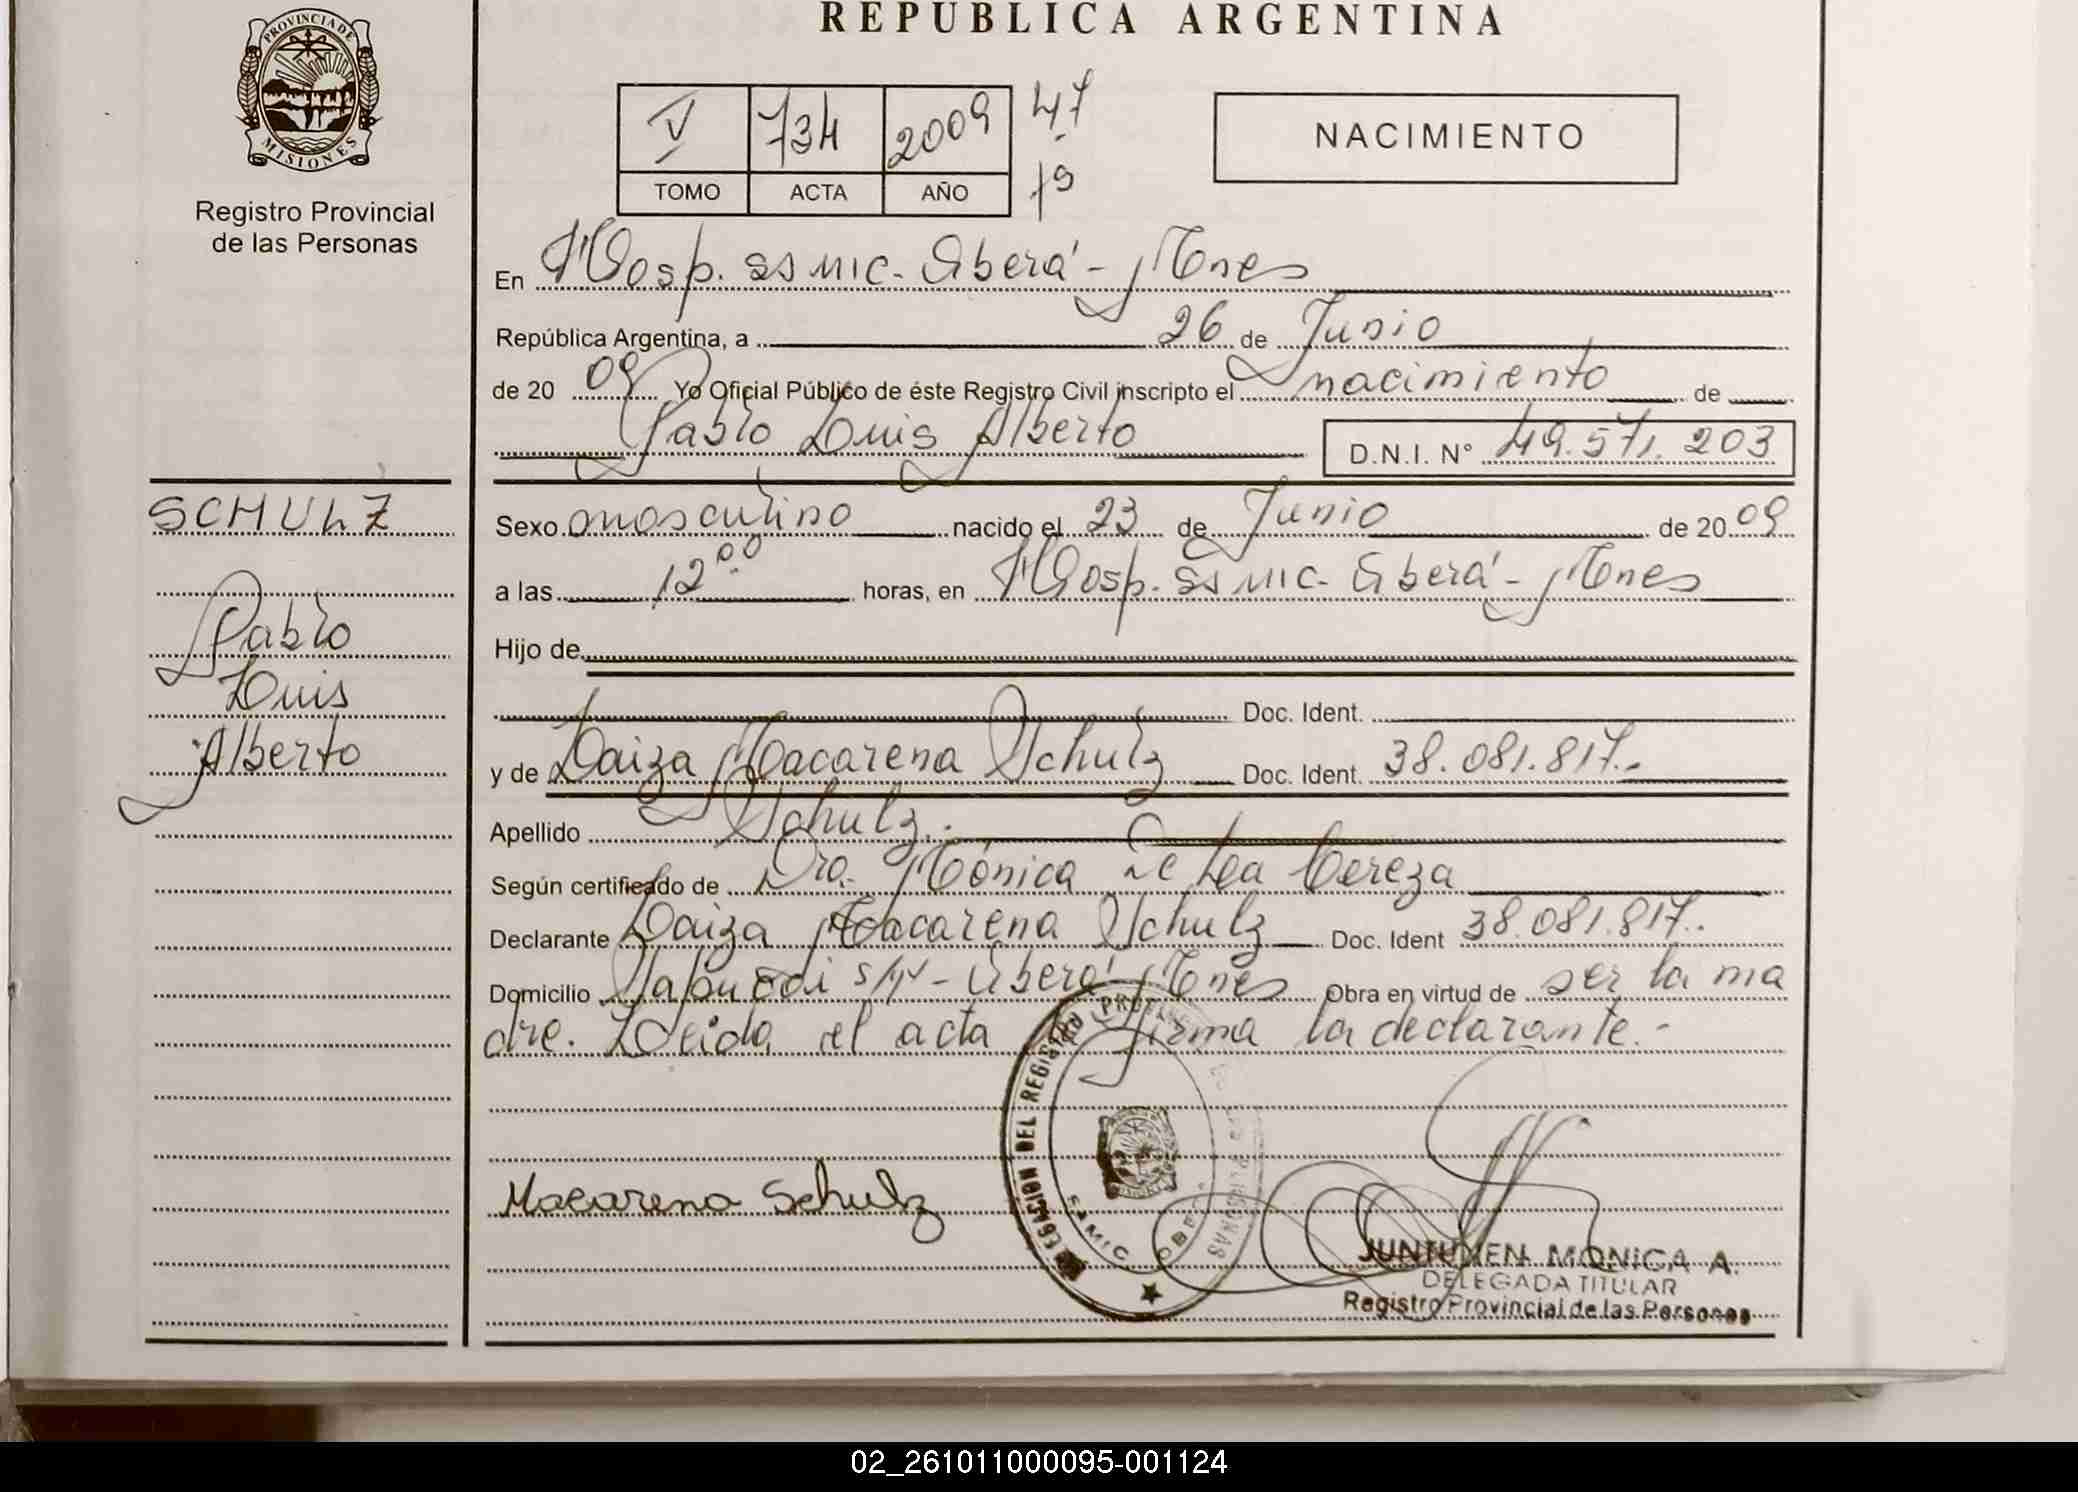 PROVINCIA DE
MISIONES
Registro Provincial
de las Personas
SCHULZ
Pablo
Luis
Alberto
REPUBLICA ARGENTINA
V 734 2009 47
TOMO ACTA AÑO 19
NACIMIENTO
En Hosp. SS MIC - Oberá - Mnes
República Argentina, a 26 de Junio
de 20 09 Yo Oficial Público de éste Registro Civil inscripto el nacimiento de
Pablo Luis Alberto D.N.I. N° 49.571.203
Sexo masculino nacido el 23 de Junio de 20 09
a las 12 00 horas, en Hosp. SS MIC - Oberá - Mnes
Hijo de
Doc. Ident.
y de Laiza Macarena Schulz Doc. Ident. 38.081.817.-
Apellido Schulz.-
Según certificado de Dra. Mónica Cereza
Declarante Laiza Macarena Schulz Doc. Ident 38.081.817.
Domicilio - Oberá - Mnes Obra en virtud de ser la ma
dre. Leida el acta firma la declarante.-
Macarena Schulz
DELEGACION DEL REGISTRO PROVINCIAL DE LAS PERSONAS
SAMIC OBERA
JUNTUNEN MONICA A.
DELEGADA TITULAR
Registro Provincial de las Personas
02_261011000095-001124